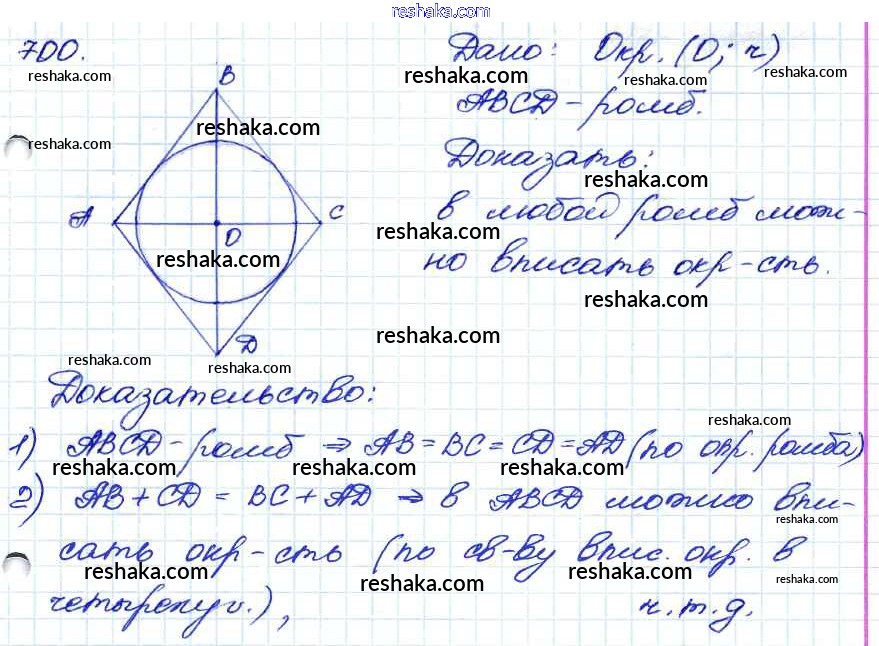 reshaka.com
700.
Дано: Окр. (О; r)
reshaka.com
reshaka.com
reshaka.com
B
ABCD - ромб.
reshaka.com
reshaka.com
Доказать:
reshaka.com
A
C
в любой ромб мож-
O
reshaka.com
reshaka.com
но вписать окр-сть.
reshaka.com
reshaka.com
D
reshaka.com
reshaka.com
Доказательство:
reshaka.com
1) ABCD - ромб ⇒ AB = BC = CD = AD (по опр. ромба)
reshaka.com reshaka.com reshaka.com
2) AB + CD = BC + AD ⇒ в ABCD можно впи-
reshaka.com
сать окр-сть (по св-ву впис. окр. в
reshaka.com reshaka.com reshaka.com
reshaka.com
четыреху.), ч.т.д.